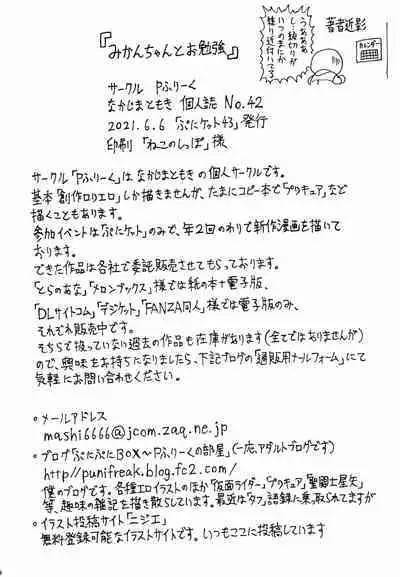 『みかんちゃんとお勉強』
著者近影
カレンダー
うああああ
しし締切りが
いつのまにか
サークル Pふりーく
なかじまともき 個人誌 No.42
2021.6.6「ぷにケット43」発行
印刷「ねこのしっぽ」様
サークル「Pふりーく」は なかじまともき の個人サークルです。
基本「創作ロリエロ」しか描きませんが、たまにコピー本で「プリキュア」など
描くこともあります。
参加イベントは「ぷにケット」のみで、年2回のわりで新作漫画を描いて
おります。
できた作品は各社で委託販売させてもらっております。
「とらのあな」「メロンブックス」様では紙の本+電子版、
「DLサイトコム」「デジケット」「FANZA同人」様では電子版のみ、
それぞれ販売中です。
そちらで扱っていない過去の作品も在庫があります(全てではありませんが)
ので、興味をお持ちになりましたら、下記ブログの「通販用メールフォーム」にて
気軽にお問い合わせください。
○メールアドレス
mashi6666@jcom.zaq.ne.jp
○ブログ「ぷにぷにBOX〜Pふりーくの部屋」(一応、アダルトブログです)
http//punifreak.blog.fc2.com/
僕のブログです。各種エロイラストのほか「仮面ライダー」「プリキュア」「聖闘士星矢」
等、趣味の雑記を描き散らしています。最近は「タフ」語録に乗っ取られてますが
○イラスト投稿サイト「ニジエ」
無料登録可能なイラストサイトです。いつもここに投稿しています